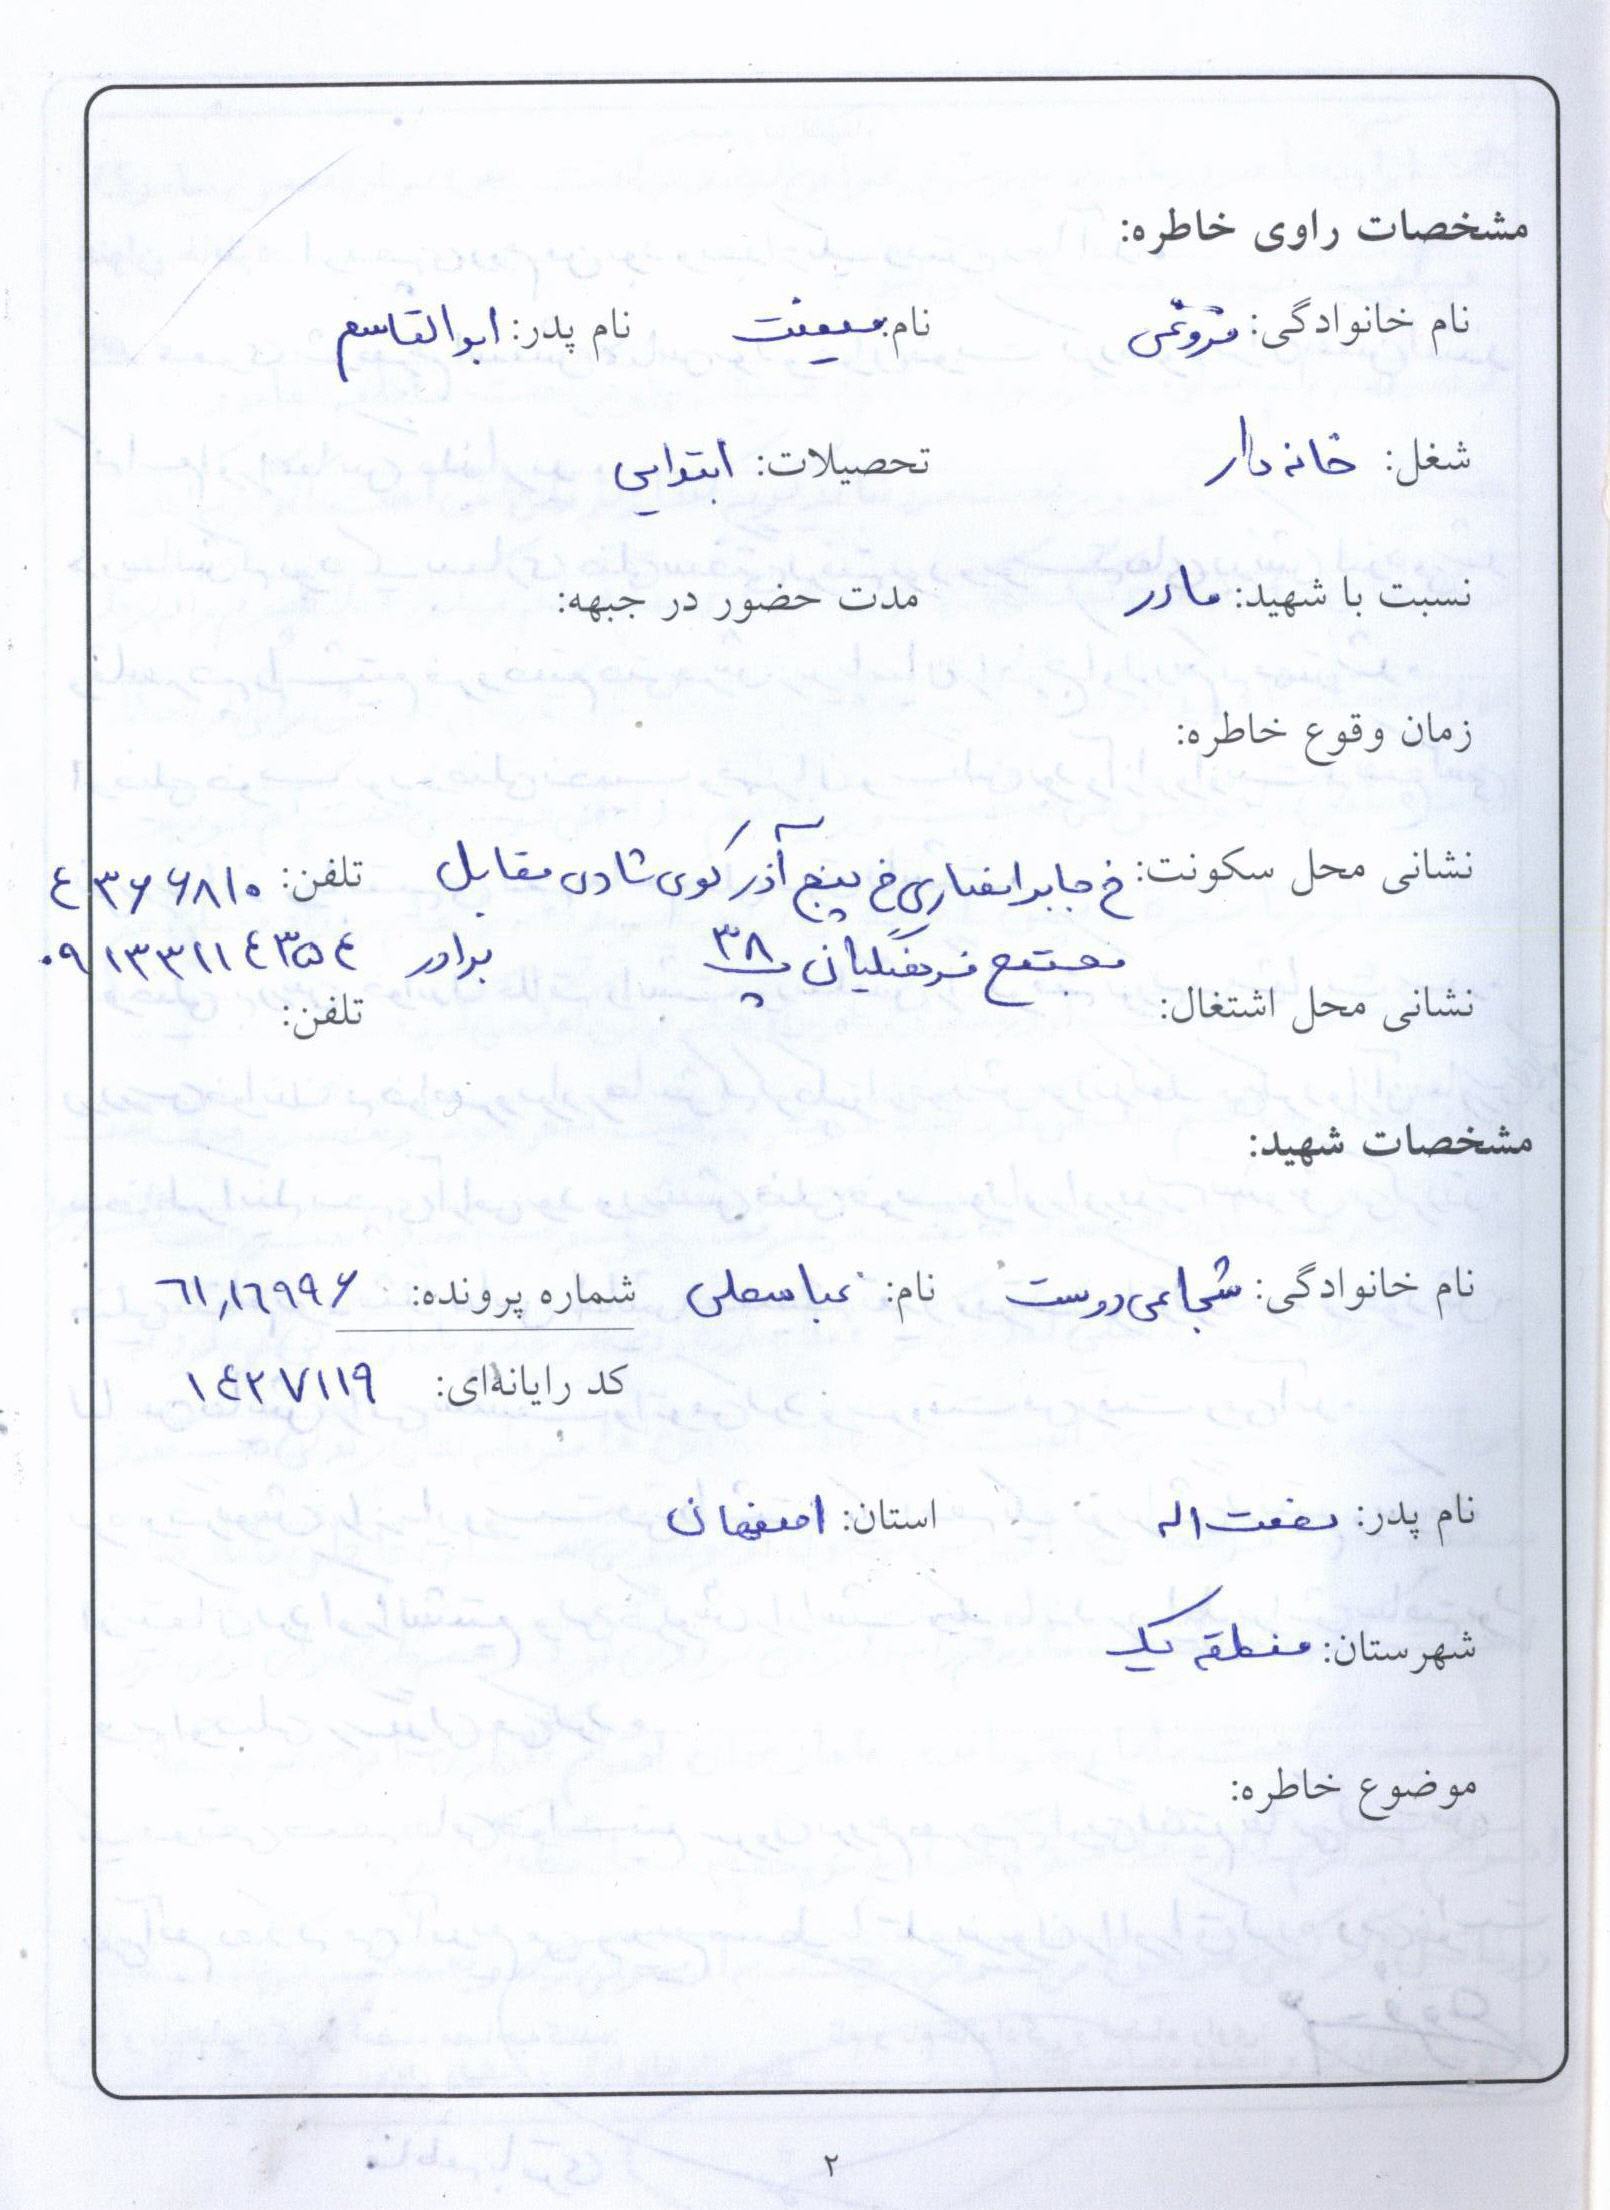 مشخصات راوی خاطره:
نام خانوادگی: نام: میمنت نام پدر: ابوالقاسم
شغل: خانه دار تحصیلات: ابتدایی
نسبت با شهید: مادر مدت حضور در جبهه:
زمان وقوع خاطره:
نشانی محل سکونت: خ جابر انصاری خ پنج آذر کوی شادی مقابل تلفن: ٤٣۶۶٨١٠
مجتمع فرهنگیان پ ٣٨ برادر ٠٩١٣٣١١٤٣٥٤
نشانی محل اشتغال: تلفن:
مشخصات شهید:
نام خانوادگی: شجاعی دوست نام: عباسعلی شماره پرونده: ٦١,١٦٩٩۶
کد رایانه‌ای: ١٤٢٧١١٩
نام پدر: نعمت اله استان: اصفهان
شهرستان: منطقه یک
موضوع خاطره:
٢